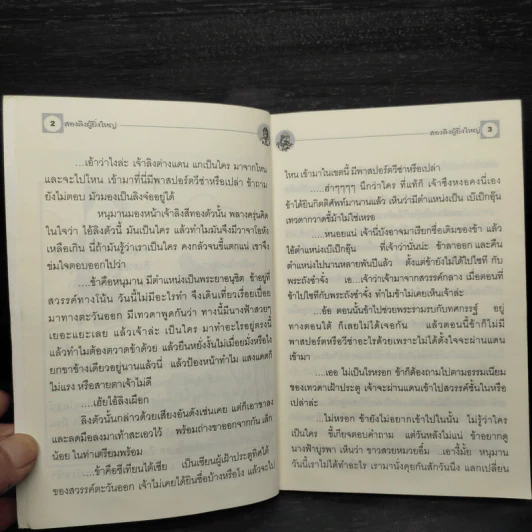 2 สองลิงผู้ยิ่งใหญ่
...เอ้าว่าไงล่ะ เจ้าลิงต่างแดน แกเป็นใคร มาจากไหน
และจะไปไหน เข้ามาที่นี่มีพาสปอร์ตวีซ่าหรือเปล่า ข้าถาม
ยังไม่ตอบ มัวมองเป็นลิงจ๋ออยู่ได้
หนุมานมองหน้าเจ้าลิงสีทองตัวนั้น พลางครุ่นคิด
ในใจว่า ไอ้ลิงตัวนี้ มันเป็นใคร แล้วทำไมมันจึงมีวาจาโอหัง
เหลือเกิน นี่ถ้ามันรู้ว่าเราเป็นใคร คงกลัวจนขี้แตกแน่ เขาจึง
ข่มใจตอบออกไปว่า
...ข้าคือหนุมาน มีตำแหน่งเป็นพระยาอนุชิต ข้าอยู่ที่
สวรรค์ทางโน้น วันนี้ไม่มีอะไรทำ จึงเดินเที่ยวเรื่อยเปื่อย
มาทางตะวันออก มีเทวดาพูดกันว่า ทางนี้มีนางฟ้าสวยๆ
เยอะแยะเลย แล้วเจ้าล่ะ เป็นใคร มาทำอะไรอยู่ตรงนี้
แล้วทำไมต้องตวาดข้าด้วย แล้วยืนหยั่งงั้นไม่เมื่อยมั่งหรือไง
ยกขาข้างเดียวอยู่นานแล้วนี่ แล้วป้องหน้าทำไม แสงแดดก็
ไม่แรง หรือสายตาเจ้าไม่ดี
...เฮ้ยไอ้ลิงเผือก
ลิงตัวนั้นกล่าวด้วยเสียงอันดังเช่นเคย แต่ก็เอาขาลง
และลดมือลงมาเท้าสะเอวไว้ พร้อมถ่างขาออกจากกัน เล็ก
น้อย ในท่าเตรียมพร้อม
...ข้าคือซีเทียนไต้เซีย เป็นเซียนผู้เฝ้าประตูทิศใต้
ของสวรรค์ตะวันออก เจ้าไม่เคยได้ยินชื่อบ้างหรือไง แล้วจะไป
สองลิงผู้ยิ่งใหญ่ 3
ไหน เข้ามาในเขตนี้ มีพาสปอร์ตวีซ่าหรือเปล่า
...ฮ่าๆๆๆๆ นึกว่าใคร ที่แท้ก็ เจ้าซึงหงอคงนี่เอง
ข้าได้ยินกิตติศัพท์มานานแล้ว เห็นว่ามีตำแหน่งเป็น เบ๊เปิกอุ๊น
เทวดากวาดขี้ม้าไม่ใช่เหรอ
...หนอยแน่ เจ้านี่บังอาจมาเรียกชื่อเดิมของข้า แล้ว
ใช้ตำแหน่งเบ๊เปิกอุ๊น ที่เจ้าว่านั่นน่ะ ข้าลาออก และคืน
ตำแหน่งไปนานหลายพันปีแล้ว ตั้งแต่ข้ายังไม่ได้ไปไซที กับ
พระถังซำจั๋ง เอ...เจ้าว่าเจ้ามาจากสวรรค์กลาง เมื่อตอนที่
ข้าไปไซทีกับพระถังซำจั๋ง ทำไมข้าไม่เคยเห็นเจ้าล่ะ
...อ้อ ตอนนั้นข้าไปช่วยพระรามรบกับทศกรรฐ์ อยู่
ทางตอนใต้ ก็เลยไม่ได้เจอกัน แล้วตอนนี้ข้าก็ไม่มี
พาสปอร์ตหรือวีซ่าอะไรด้วยเพราะไม่ได้ตั้งใจจะผ่านแดน
เข้ามา
...เออ ไม่เป็นไรหรอก ข้าก็ต้องถามไปตามธรรมเนียม
ของเทวดาเฝ้าประตู เจ้าจะผ่านแดนเข้าไปสวรรค์ชั้นในหรือ
เปล่าล่ะ
...ไม่หรอก ข้ายังไม่อยากเข้าไปในนั้น ไม่รู้ว่าใคร
เป็นใคร ขี้เกียจตอบคำถาม แต่วันหลังไม่แน่ ข้าอยากดู
นางฟ้าบูรพา เห็นว่า ขาวสวยหมวยอึ๋ม ...เอางี้มั้ย หนุมาน
วันนี้เราไม่ได้ทำอะไร เรามานั่งคุยกันสักวันนึง แลกเปลี่ยน